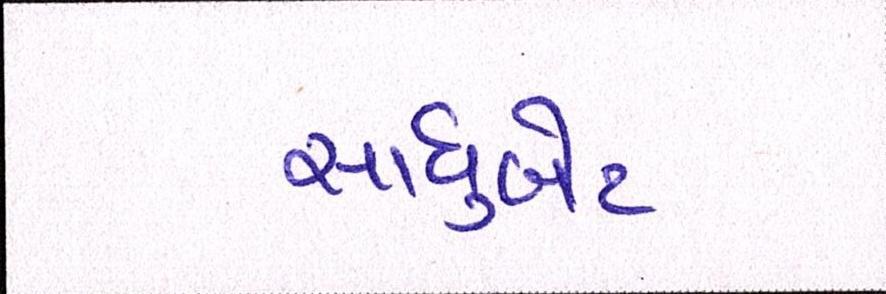 સાધુબેટ